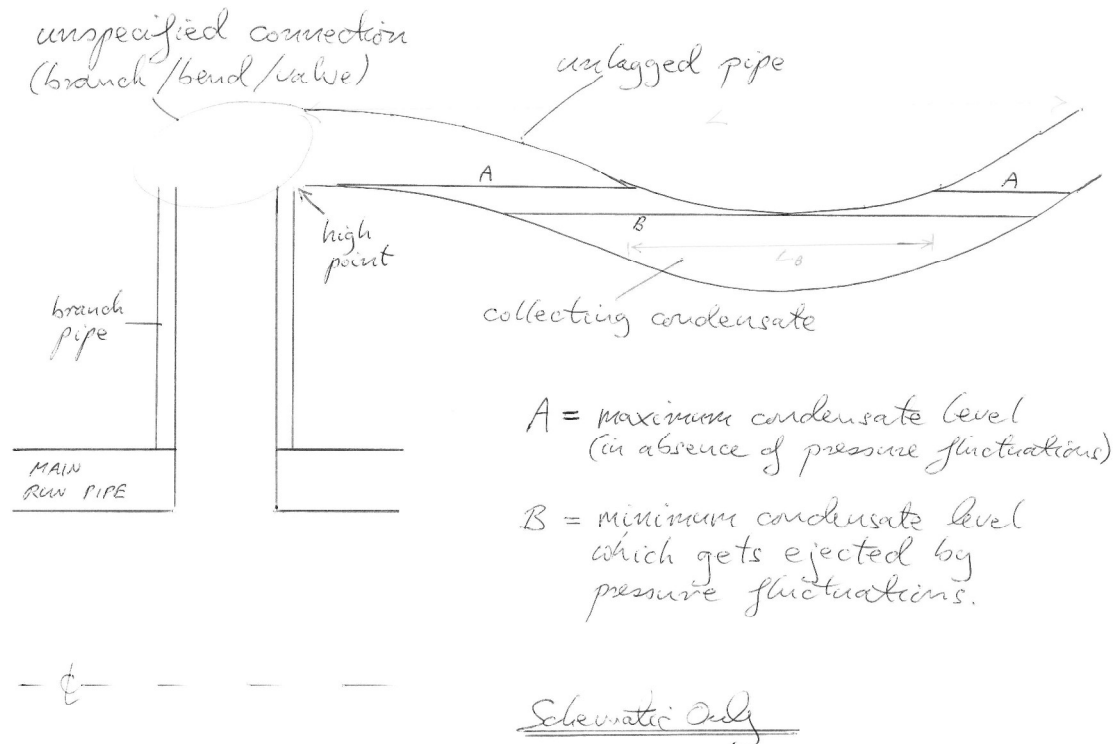 unspecified connection
(branch/bend/valve)
unlagged pipe
L
A
A
B
L_B
high
point
collecting condensate
branch
pipe
A = maximum condensate level
(in absence of pressure fluctuations)
MAIN
RUN PIPE
B = minimum condensate level
which gets ejected by
pressure fluctuations.
℄
Schematic Only